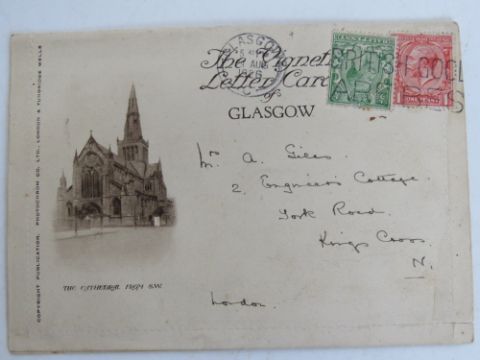 GLASGOW
AUG
1926
The Vignette
Letter Card
of
GLASGOW
HALFPENNY
ONE PENNY
BRITISH GOODS
ARE BEST
Mr A. Giles
2, Engineer's Cottage.
York Road.
Kings Cross.
N.
London.
THE CATHEDRAL FROM S.W.
COPYRIGHT PUBLICATION. PHOTOCHROM CO. LTD., LONDON & TUNBRIDGE WELLS